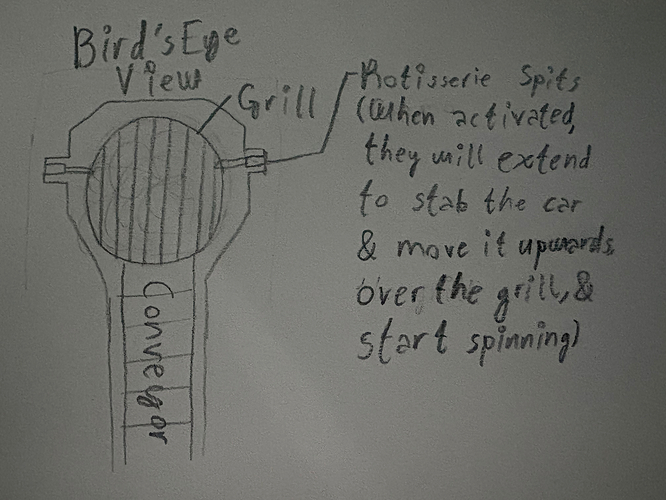 Bird's Eye
View
Grill
Rotisserie Spits
(When activated,
they will extend
to stab the car
& move it upwards
over the grill, &
start spinning)
Conveyor